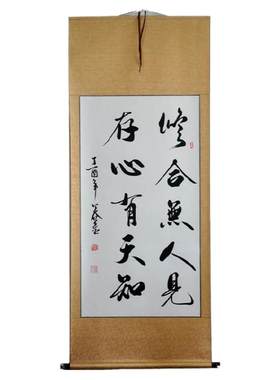 修合無人見
存心有天知
丁酉年